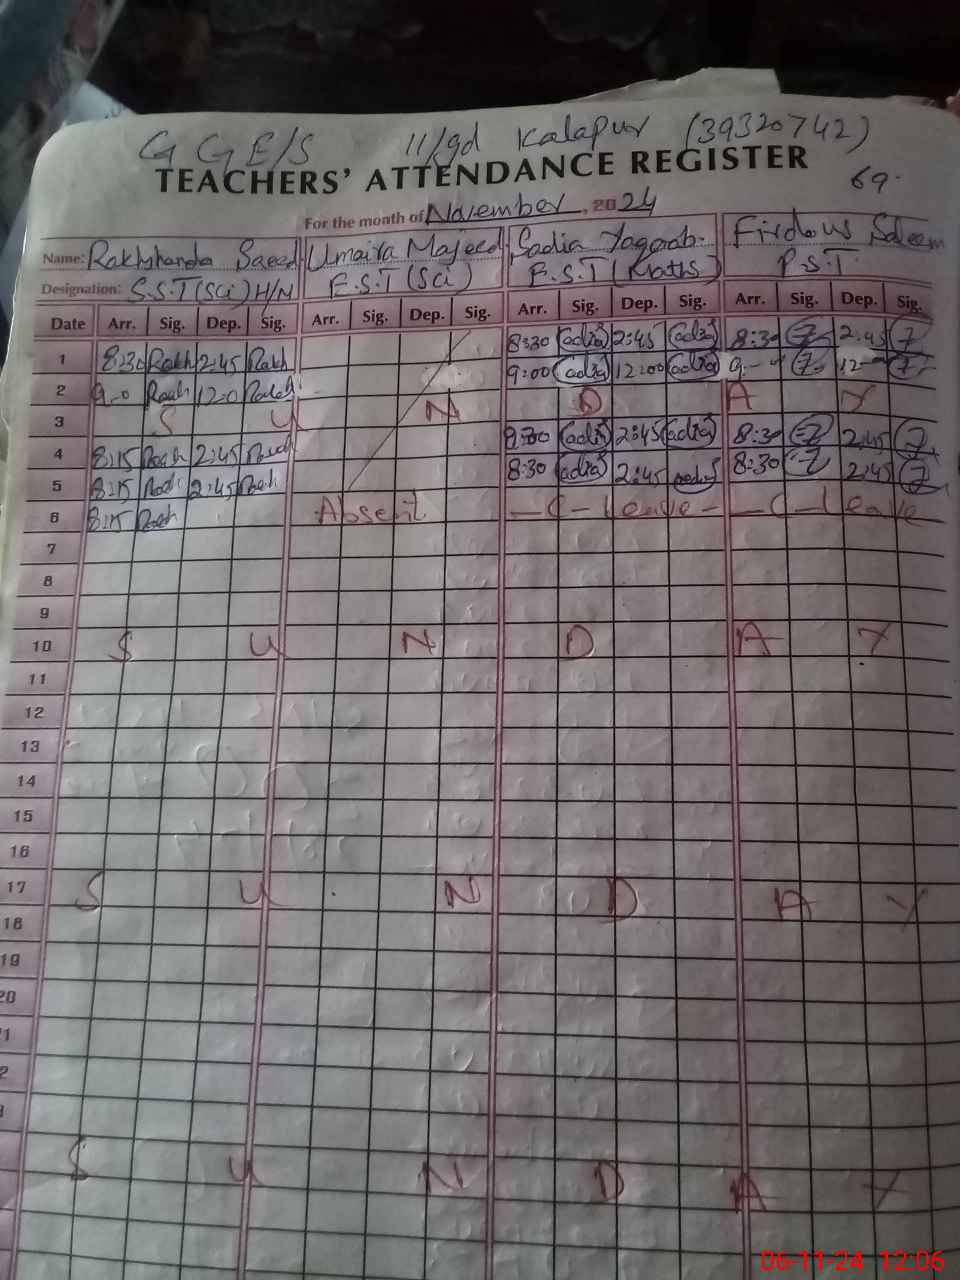 GGE/S 11/gd Kalapur (39320742)
TEACHERS' ATTENDANCE REGISTER
69.
For the month of November, 2024
Name: Rakhshanda Saeed Umaira Majeed Sadia Yaqoob. Firdous Saleem
Designation: S.S.T(Sci) H/M E.S.T (Sci) E.S.T (Maths) P.S.T
Date Arr. Sig. Dep. Sig. Arr. Sig. Dep. Sig. Arr. Sig. Dep. Sig. Arr. Sig. Dep. Sig.
1 8:30 Rakh 2:45 Rakh 8:30 Sadia 2:45 Sadia 8:30 F 2:45 F
2 9-0 Rakh 12-0 Rakh 9:00 Sadia 12:00 Sadia 9-- F 12-- F
3 S U N D A Y
4 8:15 Rakh 2:45 Rakh 8:30 Sadia 2:45 Sadia 8:30 F 2:45 F
5 8:15 Rakh 2:45 Rakh 8:30 Sadia 2:45 Sadia 8:30 F 2:45 F
6 8:15 Rakh Absent -C-Leave- -C-Leave
7
8
9
10 S U N D A Y
11
12
13
14
15
16
17 S U N D A Y
18
19
20
1
2
3
S U N D A Y
06-11-24 12:06